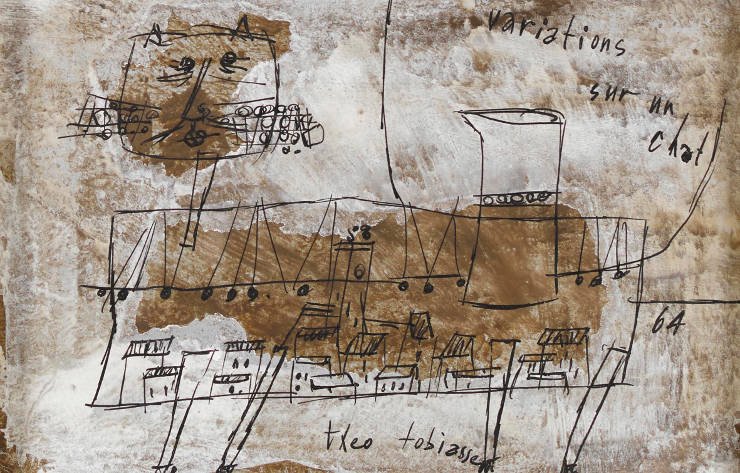 variations
sur un
chat
58
6
64
theo tobiasse